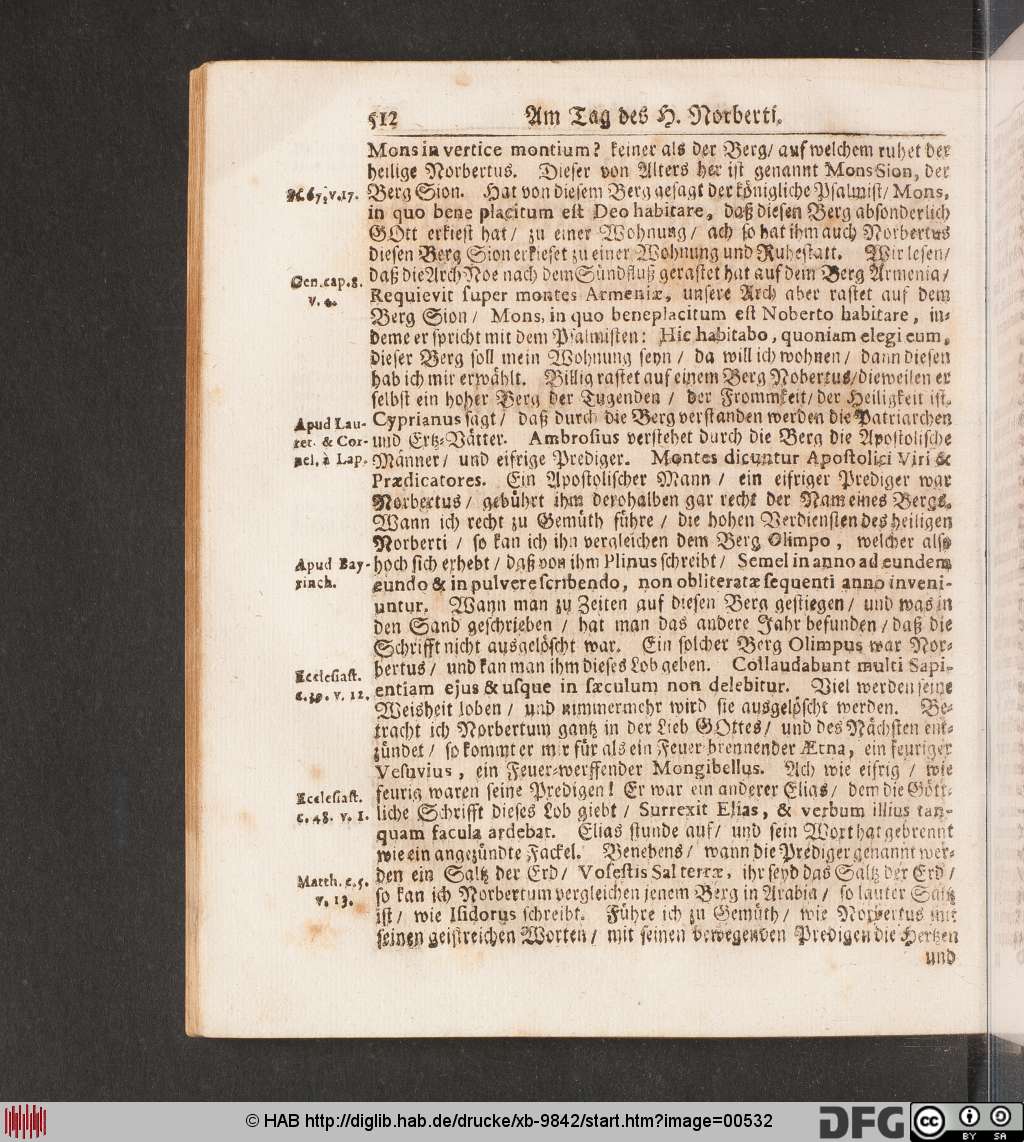 512 Am Tag des H. Norberti.
Mons in vertice montium? keiner als der Berg/ auf welchem ruhet der
heilige Norbertus. Dieser von Alters her ist genannt Mons Sion, der
Ps. 67. v. 17.
Berg Sion. Hat von diesem Berg gesagt der königliche Psalmist/ Mons,
in quo bene placitum est Deo habitare, daß diesen Berg absonderlich
GOtt erkiest hat/ zu einer Wohnung/ ach so hat ihm auch Norbertus
diesen Berg Sion erkieset zu einer Wohnung und Ruhestatt. Wir lesen/
Gen. cap. 8.
v. 4.
daß die Arch Noe nach dem Sündfluß gerastet hat auf dem Berg Armenia/
Requievit super montes Armeniæ, unsere Arch aber rastet auf dem
Berg Sion/ Mons, in quo beneplacitum est Noberto habitare, in-
deme er spricht mit dem Psalmisten: Hic habitabo, quoniam elegi eum,
dieser Berg soll mein Wohnung seyn/ da will ich wohnen/ dann diesen
hab ich mir erwählt. Billig rastet auf einem Berg Nobertus/ dieweilen er
selbst ein hoher Berg der Tugenden/ der Frommkeit/ der Heiligkeit ist.
Apud Lau-
ret. & Cor-
nel. à Lap.
Cyprianus sagt/ daß durch die Berg verstanden werden die Patriarchen
und Ertz-Vätter. Ambrosius verstehet durch die Berg die Apostolische
Männer/ und eifrige Prediger. Montes dicuntur Apostolici Viri &
Prædicatores. Ein Apostolischer Mann/ ein eifriger Prediger war
Norbertus/ gebührt ihm derohalben gar recht der Nam eines Bergs.
Wann ich recht zu Gemüth führe/ die hohen Verdiensten des heiligen
Norberti/ so kan ich ihn vergleichen dem Berg Olimpo, welcher also
Apud Bay-
rinch.
hoch sich erhebt/ daß von ihm Plinus schreibt/ Semel in anno ad eundem
eundo & in pulvere scribendo, non obliteratæ sequenti anno inveni-
untur. Wann man zu Zeiten auf diesen Berg gestiegen/ und was in
den Sand geschrieben/ hat man das andere Jahr befunden/ daß die
Schrifft nicht ausgelöscht war. Ein solcher Berg Olimpus war Nor-
bertus/ und kan man ihm dieses Lob geben. Collaudabunt multi Sapi-
Ecclesiast.
c. 39. v. 12.
entiam ejus & usque in sæculum non delebitur. Viel werden seine
Weisheit loben/ und nimmermehr wird sie ausgelöscht werden. Be-
tracht ich Norbertum gantz in der Lieb GOttes/ und des Nächsten ent-
zündet/ so kommt er mir für als ein Feuer brennender Ætna, ein feuriger
Vesuvius, ein Feuer-werffender Mongibellus. Ach wie eifrig/ wie
feurig waren seine Predigen! Er war ein anderer Elias/ dem die Gött-
Ecclesiast.
c. 48. v. 1.
liche Schrifft dieses Lob giebt/ Surrexit Elias, & verbum illius tan-
quam facula ardebat. Elias stunde auf/ und sein Wort hat gebrennt
wie ein angezündte Fackel. Benebens/ wann die Prediger genannt wer-
Matth. c. 5.
v. 13.
den ein Saltz der Erd/ Vos estis Sal terræ, ihr seyd das Saltz der Erd/
so kan ich Norbertum vergleichen jenem Berg in Arabia/ so lauter Saltz
ist/ wie Isidorus schreibt. Führe ich zu Gemüth/ wie Norbertus mit
seinen geistreichen Worten/ mit seinen bewegenden Predigen die Hertzen
und
© HAB http://diglib.hab.de/drucke/xb-9842/start.htm?image=00532
DFG
cc
BY SA